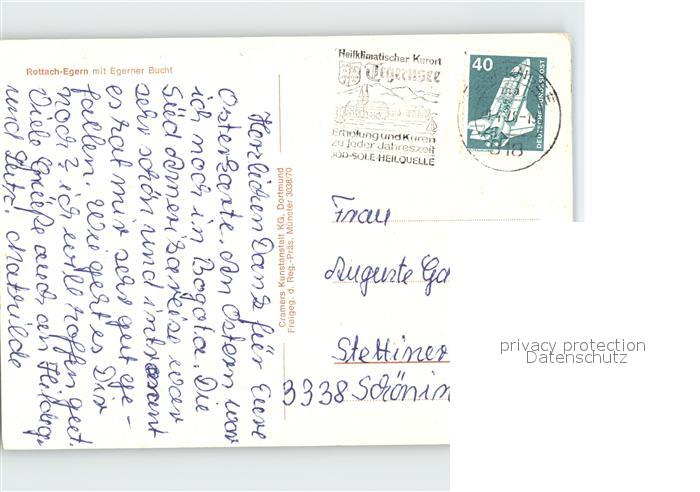 Rottach-Egern mit Egerner Bucht
Herzlichen Dank für Eure
Osterkarte. An Ostern war
ich noch in Bogota. Die
Südamerikareise war
sehr schön und intressant
es hat mir sehr gut ge-
fallen. Wie geht es Dir
noch? ich will hoffen gut.
Viele Grüße auch an
und Lutz. Mathilde
Cramers Kunstanstalt KG, Dortmund
Freigeg. d. Reg.-Präs. Münster 3038/70
Heilklimatischer Kurort
Tegernsee
Erholung und Kuren
zu jeder Jahreszeit
JOD-SOLE-HEILQUELLE
818
40
DEUTSCHE BUNDESPOST
Frau
Auguste Ga
Stettiner
3338 Schönin
privacy protection
Datenschutz